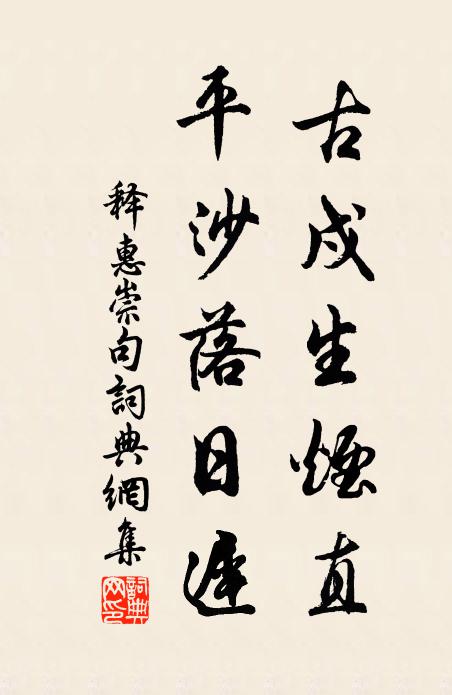 古戍生煙直
平沙落日遲
释惠崇句詞典網集
詞典网印